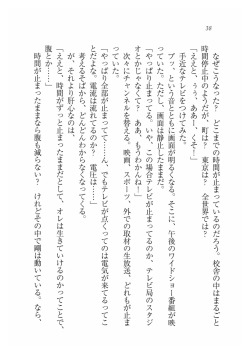 38
なぜこうなった？　どこまでの時間が止まっているのだろう。校舎の中はまるごと
時間停止中のようだが、町は？　東京は？　全世界では？
「ええと、うぅ、ああー、くそー」
手近なテレビをつけてみた。
ブン、という音とともに画面が明るくなる。そこに、午後のワイドショー番組が映
っていた。ただし、画面は静止したままだ。
「やっぱり止まってる。いや、この場合テレビが止まってるのか、テレビ局のスタジ
オとかじゃなくて？　ああ、もうわかんねー！」
次々にチャンネルを替える。映画、スポーツ、外での取材の生放送、どれも止まま
っていた。
「やっぱり全部が止まってて……ん、でもテレビが点くってのは電気が来てるってこ
とだよな。電流は流れてるのか？　電圧は……」
考えるそばから、どんどんわからなくなってくる。
だが、それより肝心なのは、
「ええと、時間がずっと止まったままだとして、オレは生きていけるのかってことで、
腹とか……」
時間が止まったままなら腹も減らない？　けれどその中で剛は動いている。なら、